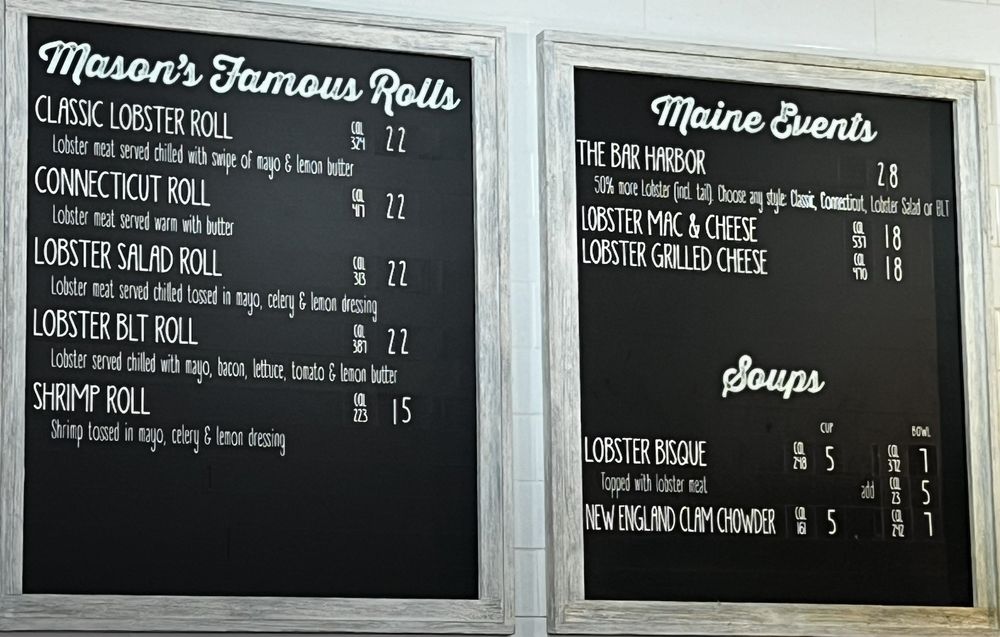 Mason's Famous Rolls
CLASSIC LOBSTER ROLL CAL 324 22
Lobster meat served chilled with swipe of mayo & lemon butter
CONNECTICUT ROLL CAL 417 22
Lobster meat served warm with butter
LOBSTER SALAD ROLL CAL 313 22
Lobster meat served chilled tossed in mayo, celery & lemon dressing
LOBSTER BLT ROLL CAL 387 22
Lobster served chilled with mayo, bacon, lettuce, tomato & lemon butter
SHRIMP ROLL CAL 223 15
Shrimp tossed in mayo, celery & lemon dressing
Maine Events
THE BAR HARBOR 28
50% more Lobster (incl. tail). Choose any style: Classic, Connecticut, Lobster Salad or BLT
LOBSTER MAC & CHEESE CAL 537 18
LOBSTER GRILLED CHEESE CAL 470 18
Soups
CUP BOWL
LOBSTER BISQUE CAL 248 5 CAL 372 7
Topped with lobster meat add CAL 23 5
NEW ENGLAND CLAM CHOWDER CAL 161 5 CAL 242 7